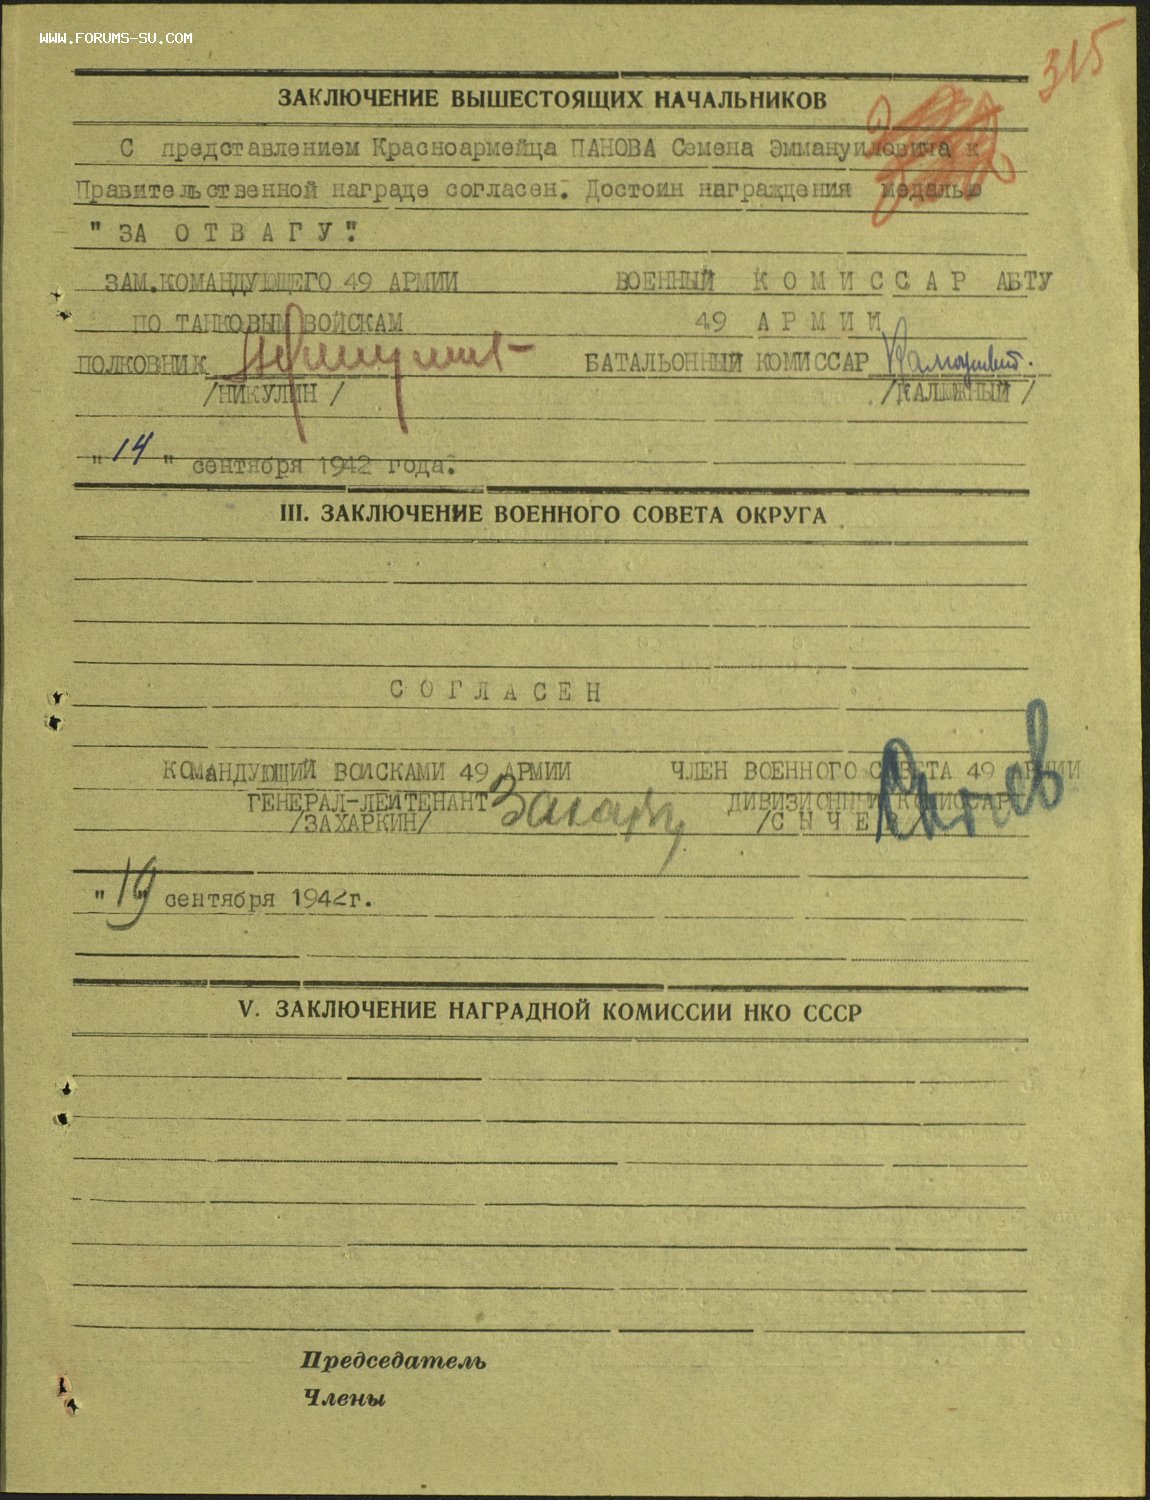 WWW.FORUMS-SU.COM
315
ЗАКЛЮЧЕНИЕ ВЫШЕСТОЯЩИХ НАЧАЛЬНИКОВ
С представлением Красноармейца ПАНОВА Семена Эммануиловича к
Правительственной награде согласен. Достоин награждения медалью
" ЗА ОТВАГУ".
ЗАМ.КОМАНДУЮЩЕГО 49 АРМИИ ВОЕННЫЙ КОМИССАР АБТУ
ПО ТАНКОВЫМ ВОЙСКАМ 49 АРМИИ
ПОЛКОВНИК БАТАЛЬОННЫЙ КОМИССАР
/НИКУЛИН / /КАЛЮЖНЫЙ /
"14" сентября 1942 года.
III. ЗАКЛЮЧЕНИЕ ВОЕННОГО СОВЕТА ОКРУГА
СОГЛАСЕН
КОМАНДУЮЩИЙ ВОЙСКАМИ 49 АРМИИ ЧЛЕН ВОЕННОГО СОВЕТА 49 АРМИИ
ГЕНЕРАЛ-ЛЕЙТЕНАНТ ДИВИЗИОННЫЙ КОМИССАР
/ЗАХАРКИН/ /СЫЧЕВ
"19" сентября 1942г.
V. ЗАКЛЮЧЕНИЕ НАГРАДНОЙ КОМИССИИ НКО СССР
Председатель
Члены